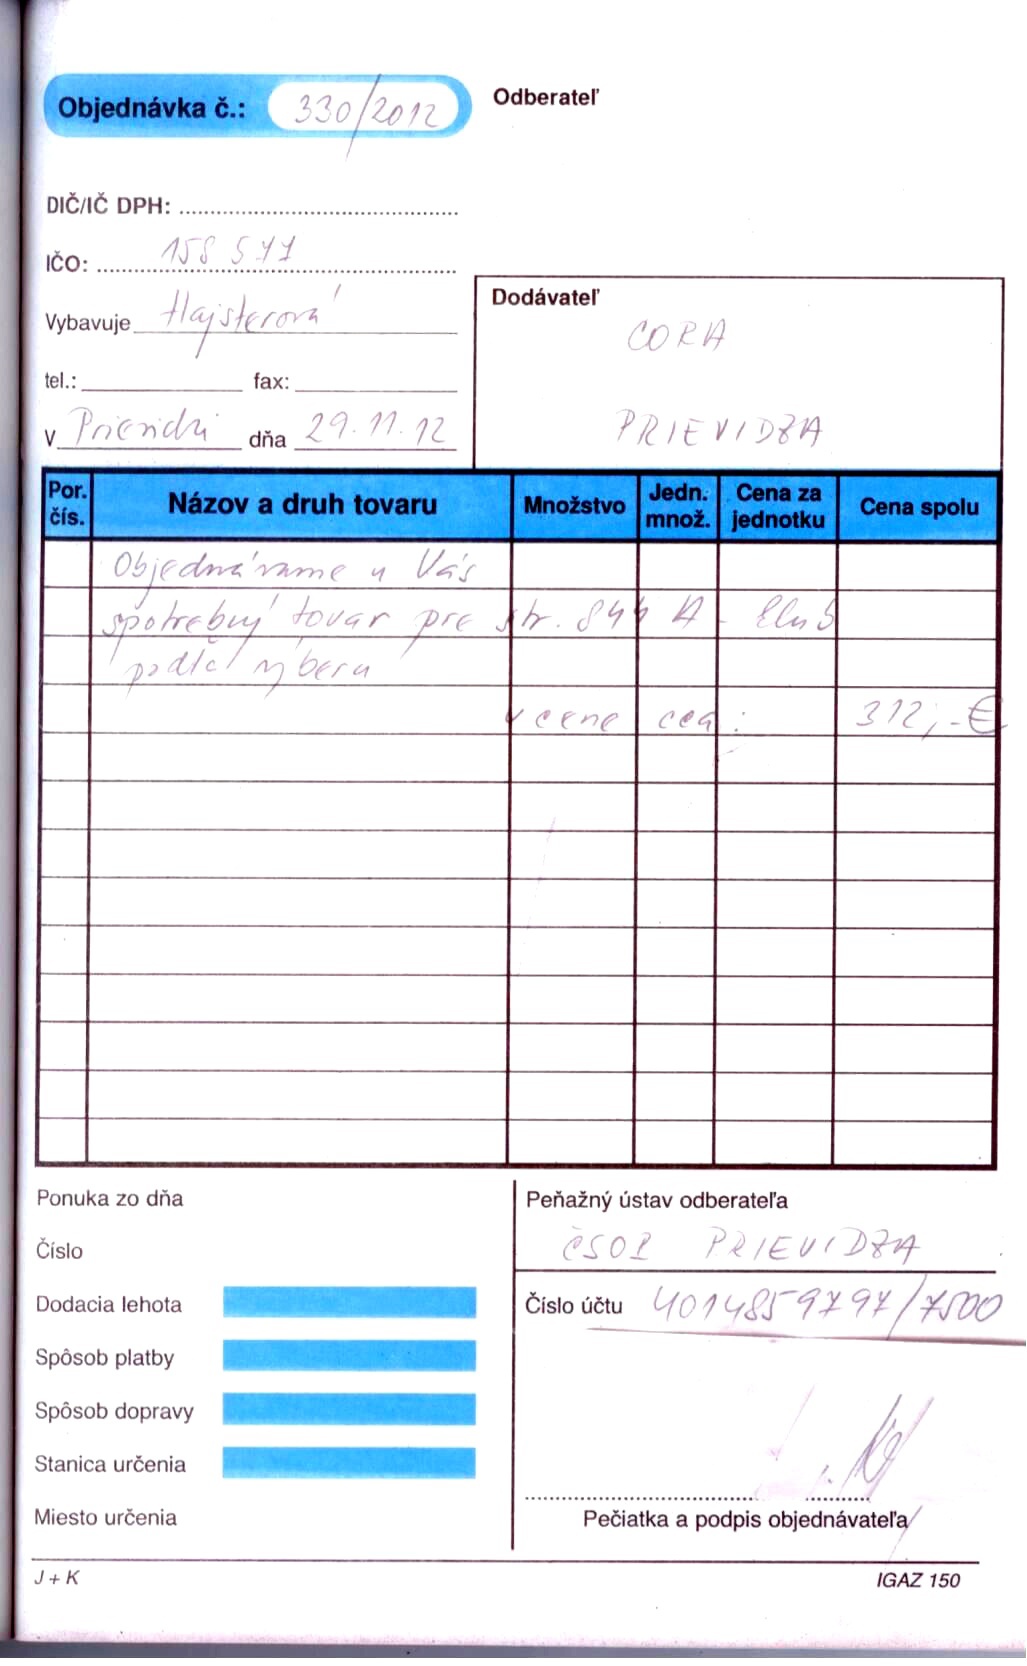 Objednávka č.: 330/2012
Odberateľ
DIČ/IČ DPH:
IČO: 158 577
Vybavuje Hajsterová
tel.: fax:
V Prievidzi dňa 29.11.12
Dodávateľ
CORA
PRIEVIDZA
Por. čís. Názov a druh tovaru Množstvo Jedn. množ. Cena za jednotku Cena spolu
Objednávame u Vás
spotrebný tovar pre str. 844 A -
podľa výberu
v cene cca: 312,-€
Ponuka zo dňa
Číslo
Dodacia lehota
Spôsob platby
Spôsob dopravy
Stanica určenia
Miesto určenia
Peňažný ústav odberateľa
ČSOB PRIEVIDZA
Číslo účtu 4014859797/7500
Pečiatka a podpis objednávateľa
J + K
IGAZ 150